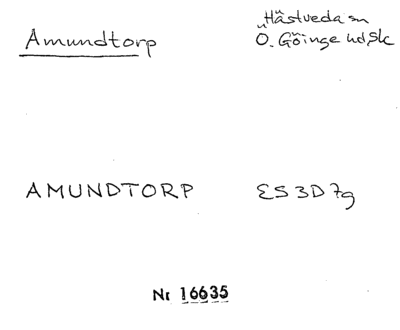 Amundtorp
Hästveda sn
Ö. Göinge hd, Sk
AMUNDTORP
ES 3D 7g
Nr 16635